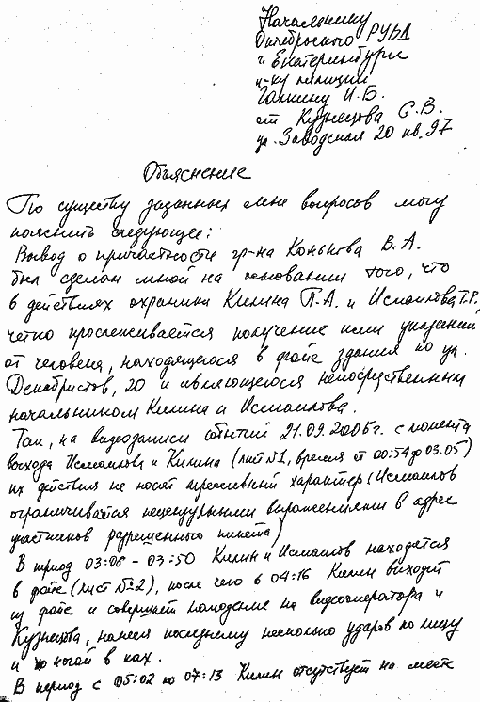 Начальнику
Октябрьского РУВД
г. Екатеринбурга
п-ку милиции
И.Б.
от Кузнецова С.В.
ул. Заводская 20 кв. 97
Объяснение
По существу заданных мне вопросов могу
пояснить следующее:
Вывод о причастности гр-на Конькова В.А.
был сделан мной на основании того, что
в действиях охранники Килина П.А. и Исмаилова Т.Г.
четко прослеживается получение ими указаний
от человека, находящегося в фойе здания по ул.
Декабристов, 20 и являющегося непосредственным
начальником Килина и Исмаилова.
Так, на видеозаписи событий 21.09.2006г. с момента
выхода Исмаилова и Килина (лист №1, время от 00:54 до 03:05)
их действия не носят агрессивный характер (Исмаилов
ограничивается нецензурными выражениями в адрес
участников разрешенного пикета)
В период 03:08 - 03:50 Килин и Исмаилов находятся
в фойе (лист №2), после чего в 04:16 Килин выходит
из фойе и совершает нападение на видеооператора и
Кузнецова, нанеся последнему несколько ударов по лицу
и ногой в пах.
В период с 05:02 по 07:13 Килин отсутствует на месте